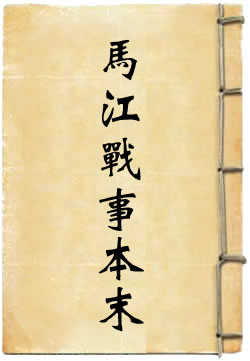 馬江戰事本末